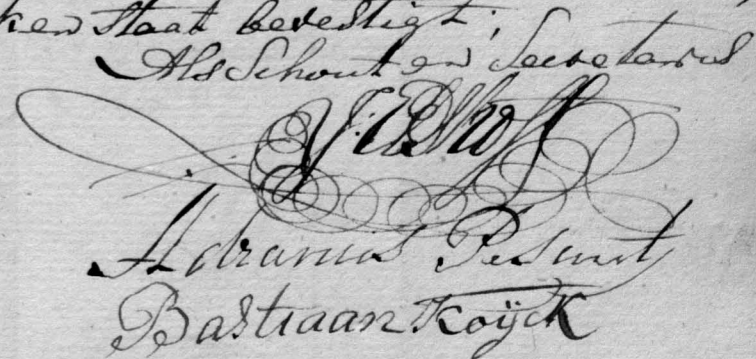 ken Staat bevestigt;
Als Schout en Secretarius
Adrianus
Bastiaan Koijck